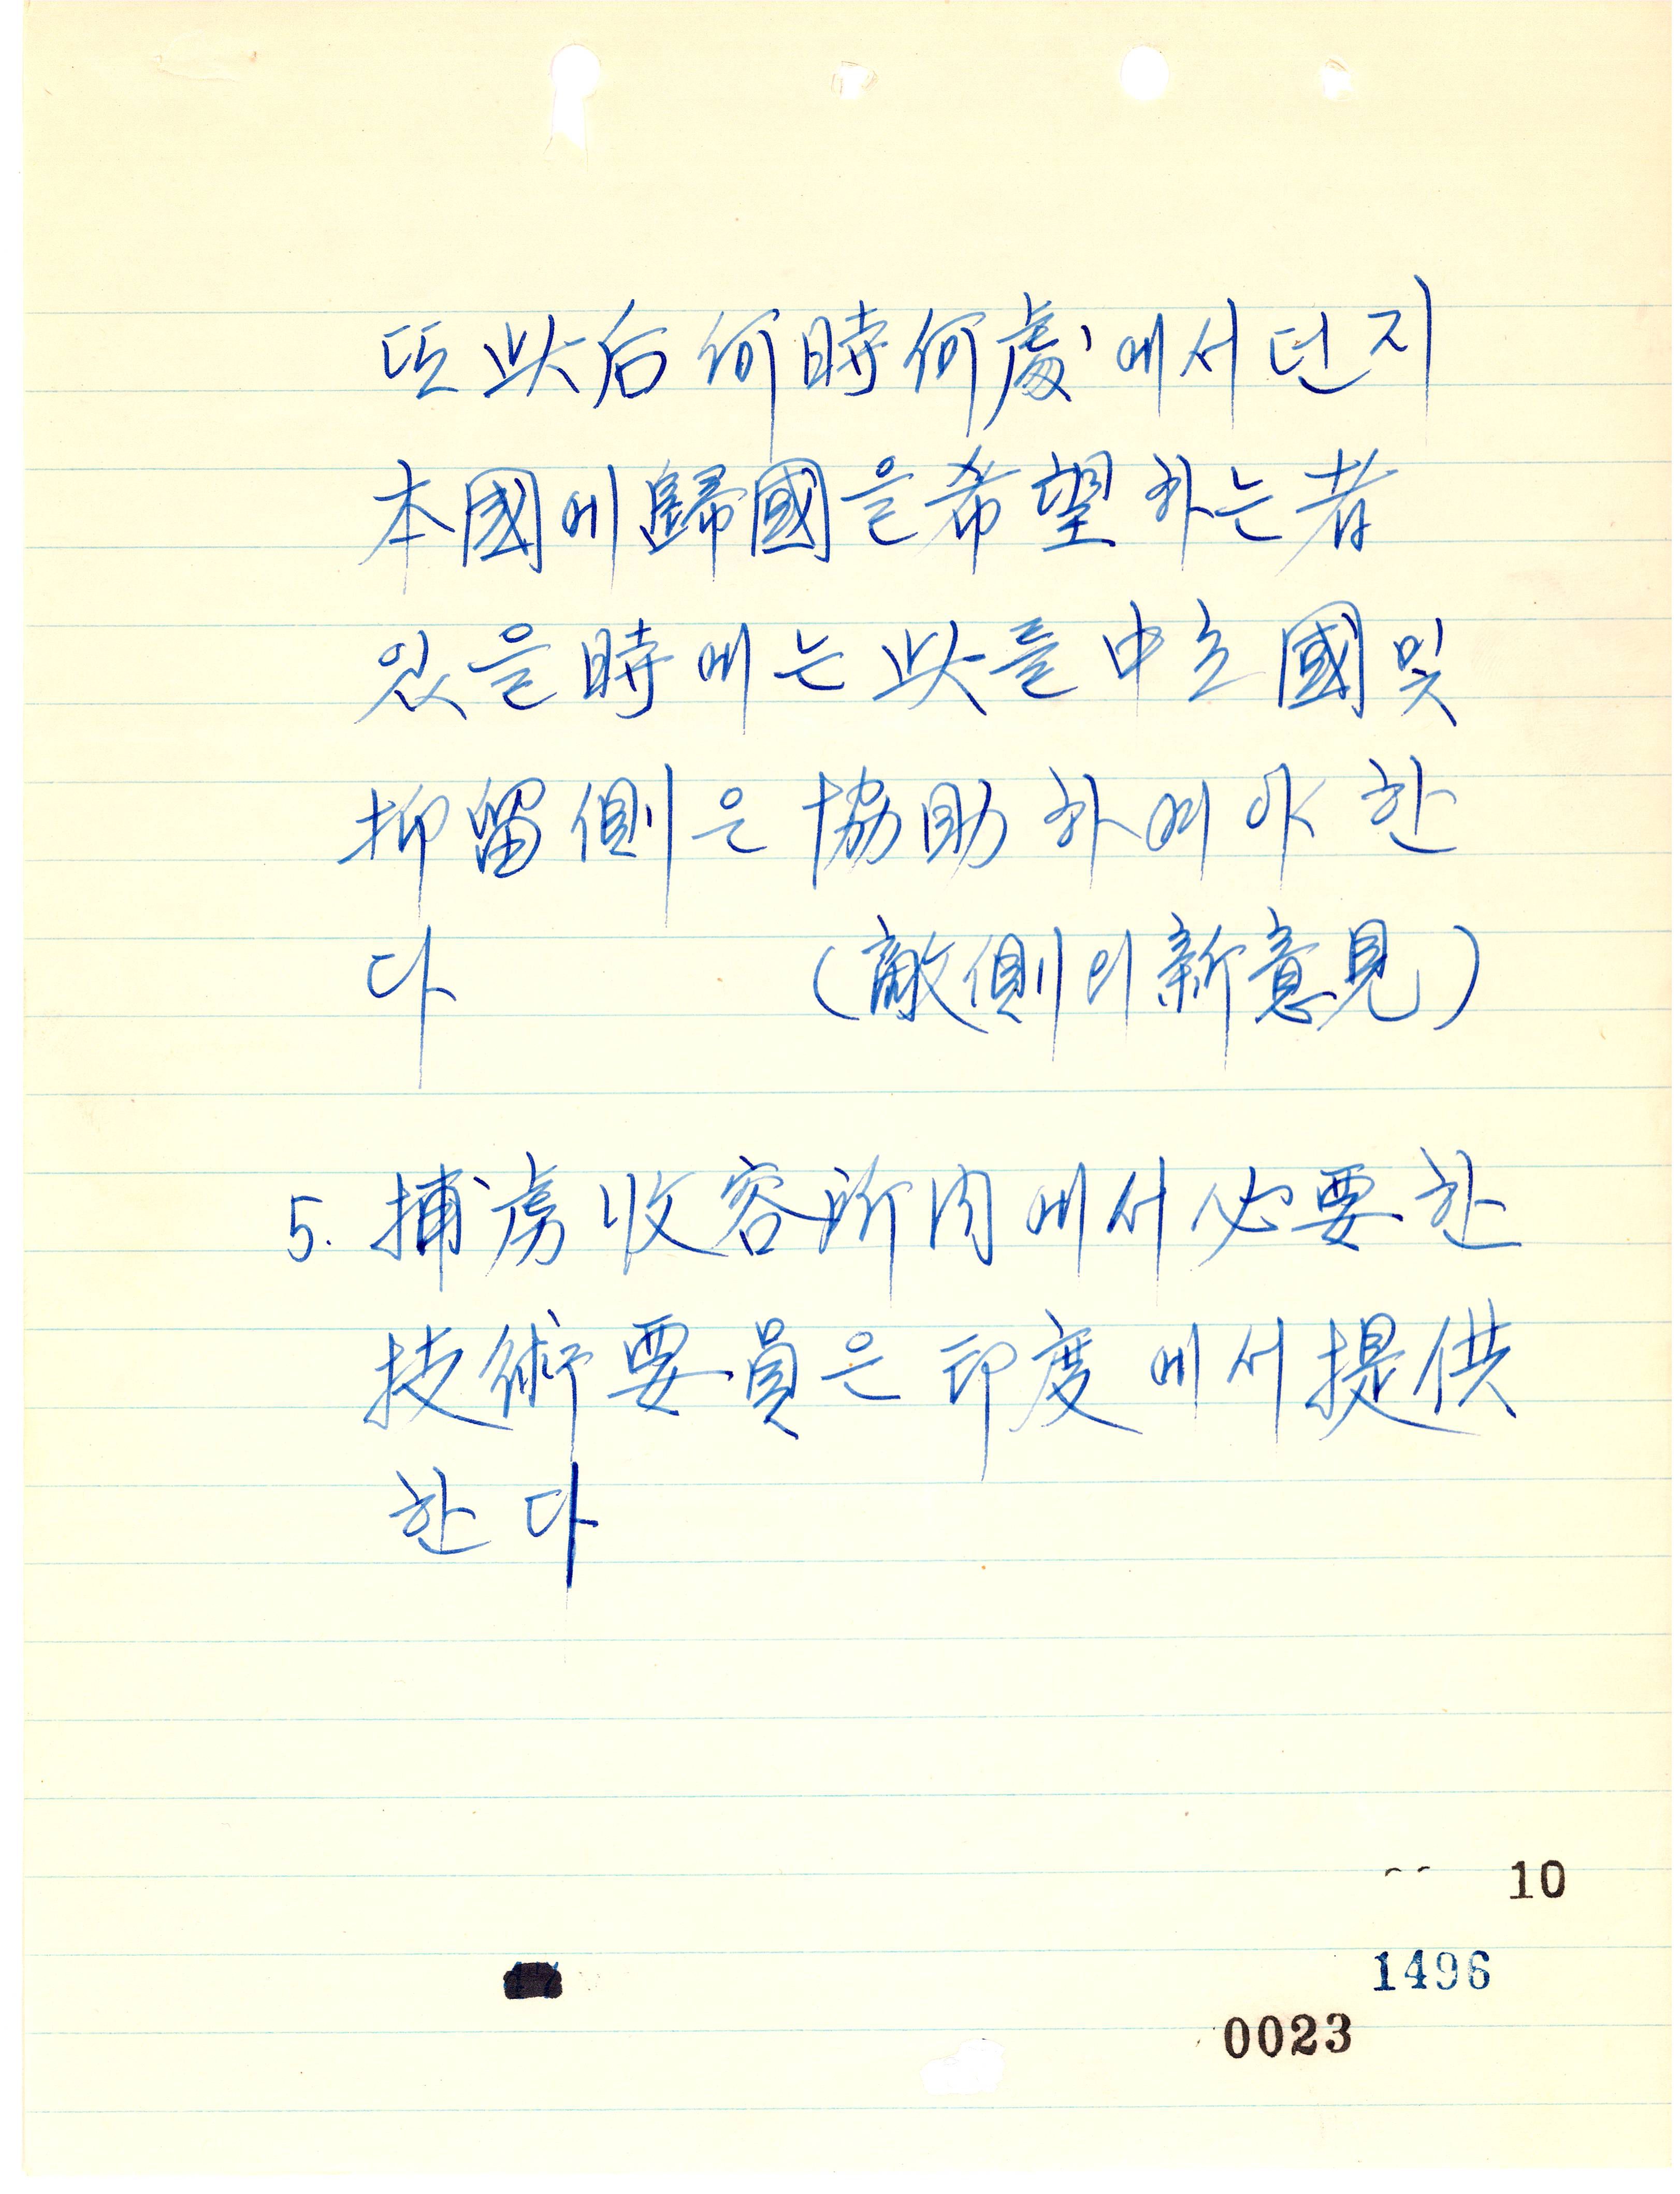 또 此后 何時何處에서던지
本國에 歸國을 希望하는 者
있을 時에는 此를 中立國 및
抑留側은 協助하여야 한
다 (敵側의 新意見)
5. 捕虜收容所內에서 必要한
技術要員은 印度에서 提供
한다
10
1496
0023